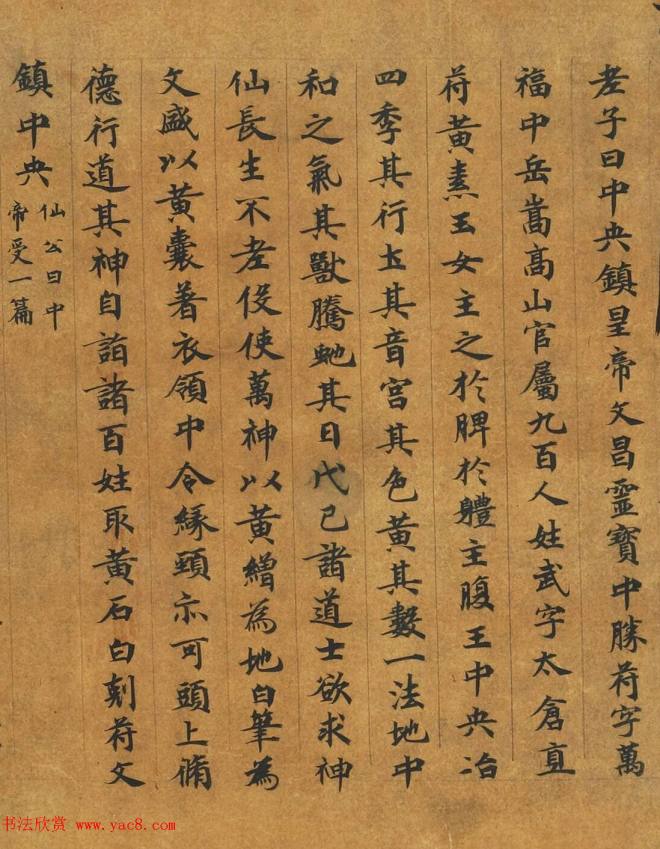 老子曰中央鎮皇帝文昌靈寶中勝符字萬
福中岳嵩高山官屬九百人姓武字太倉直
符黃素玉女主之於脾於軆主腹王中央治
四季其行土其音宮其色黃其數一法地中
和之氣其獸騰虵其日戊己諸道士欲求神
仙長生不老役使萬神以黃繒為地白筆為
文盛以黃囊著衣領中令緣頸亦可頭上脩
德行道其神自詣諸百姓取黃石白刻符文
鎮中央仙公曰中
帝受一篇
书法欣赏 www.yac8.com